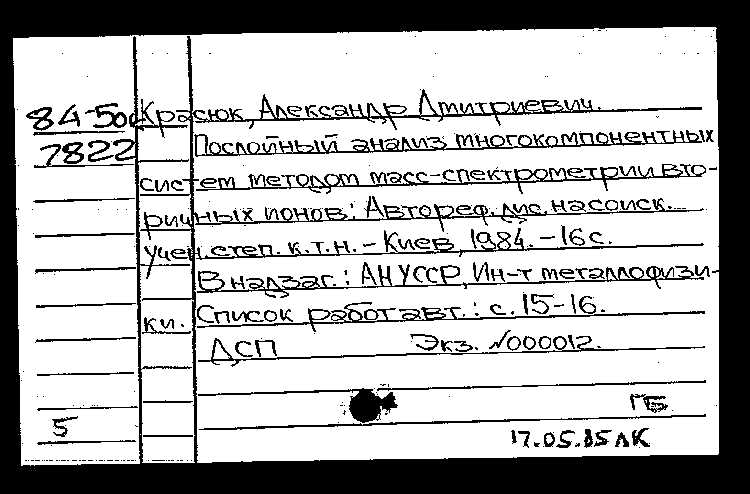 84-5од Красюк, Александр Дмитриевич.
7822 Послойный анализ многокомпонентных
систем методом масс-спектрометрии вто-
ричных ионов: Автореф. дис. на соиск.
учен. степ. к.т.н. - Киев, 1984. - 16 с.
В надзаг.: АН УССР, Ин-т металлофизи-
ки. Список работ авт.: с. 15-16.
ДСП Экз. №000012.
ГБ
5
17.05.85 ЛК